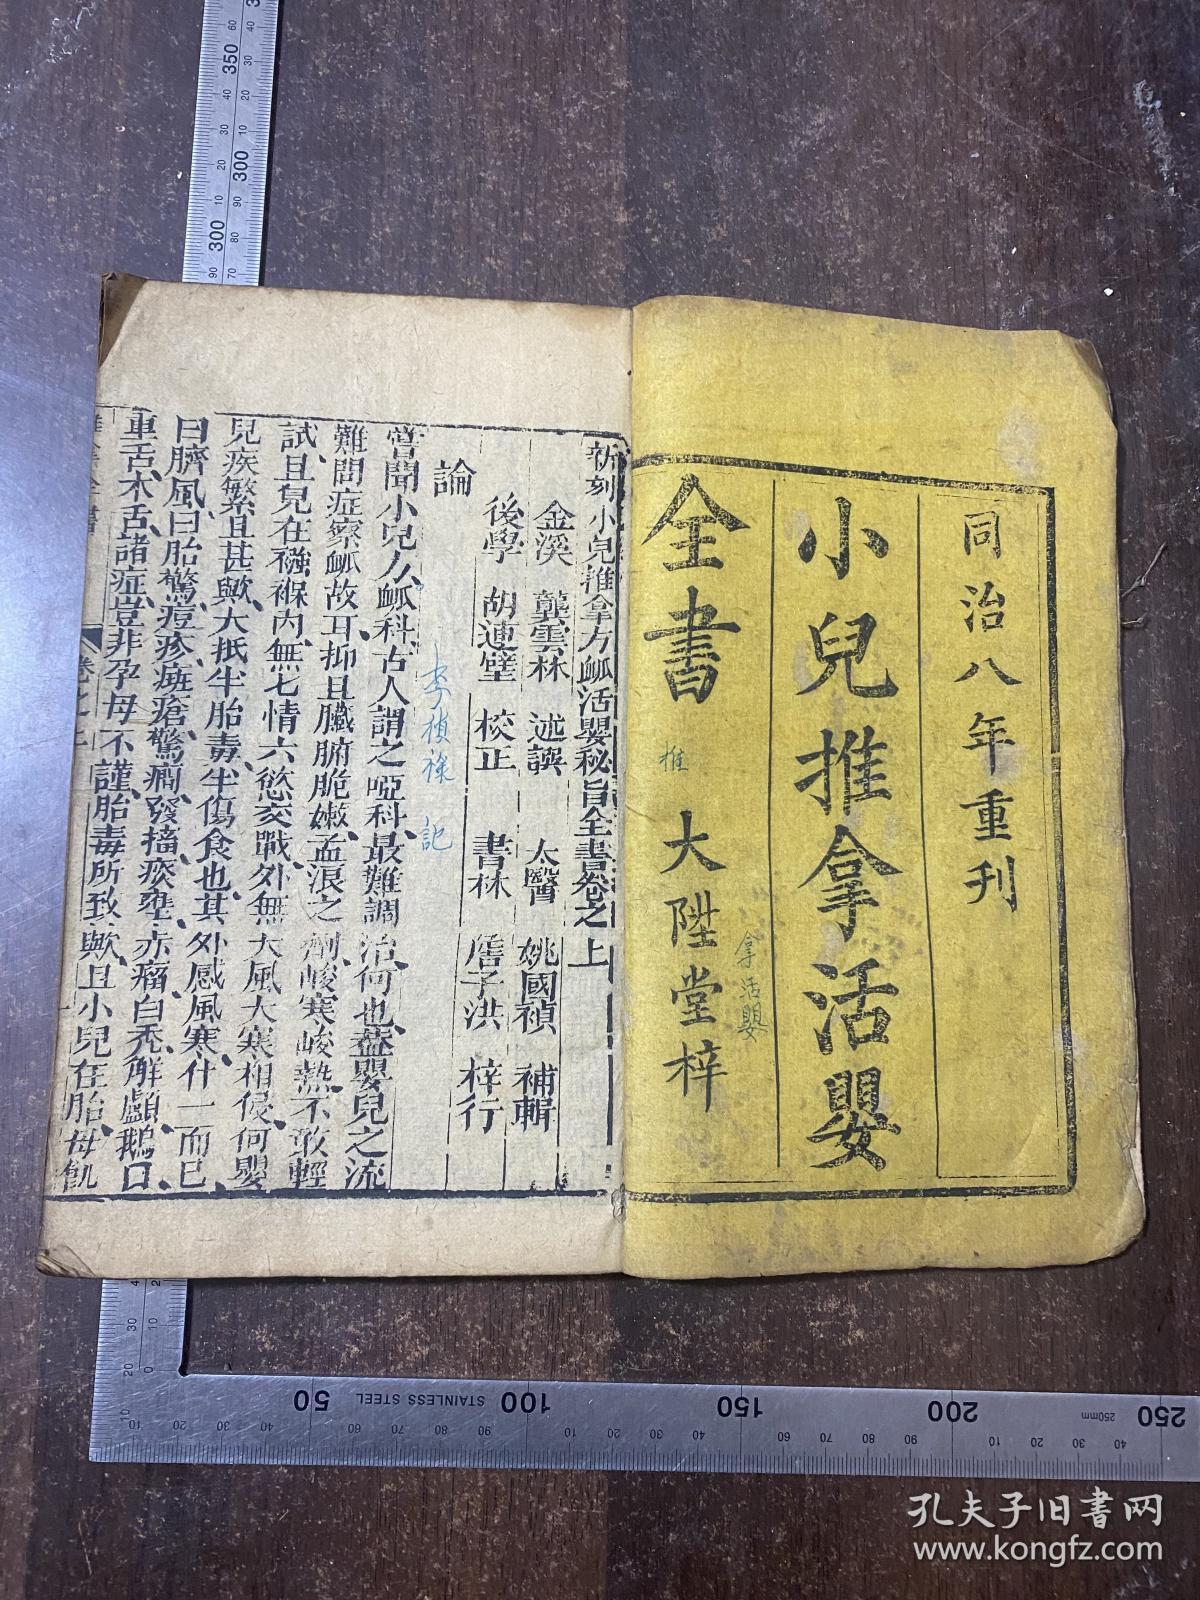 同治八年重刊
小兒推拿活嬰
全書
大陞堂梓
推
拿活嬰
新刻小兒推拿方脉活嬰秘旨全書卷之上
金溪 龔雲林 述譔 太醫 姚國禎 補輯
後學 胡連璧 校正 書林 詹子洪 梓行
論
李楨祿記
嘗聞小兒方脉科古人謂之啞科最難調治何也蓋嬰兒之流
難問症察脉故耳抑且臟腑脆嫩孟浪之劑峻寒峻熱不敢輕
試且兒在襁褓內無七情六慾交戰外無大風大寒相侵何嬰
兒疾繁且甚歟大抵半胎毒半傷食也其外感風寒什一而已
曰臍風曰胎驚痘疹痲瘡驚癇發搐痰壅赤瘤白禿解顱鵝口
重舌木舌諸症豈非孕母不謹胎毒所致歟且小兒在胎母飢
卷之上
孔夫子旧书网
www.kongfz.com
50
STAINLESS STEEL
100
150
200
250mm
250
300
300
350